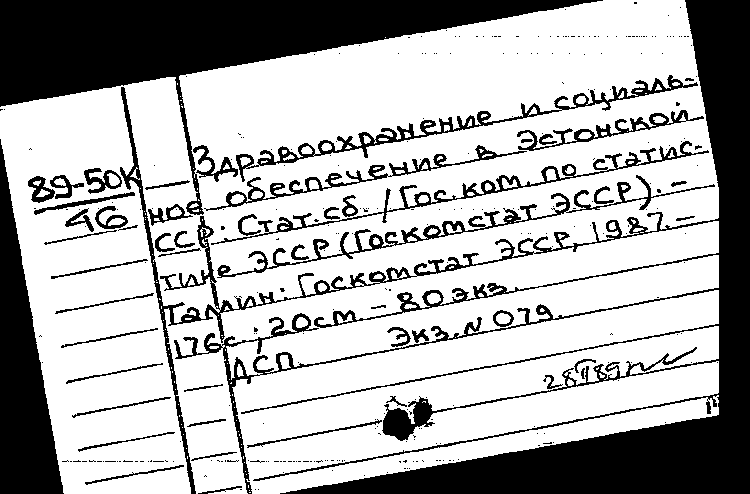 89-50К
46
Здравоохранение и социаль-
ное обеспечение в Эстонской
ССР: Стат. сб. / Гос. ком. по статис-
тике ЭССР (Госкомстат ЭССР). –
Таллин: Госкомстат ЭССР, 1987. –
176с.; 20см – 80 экз.
ДСП. Экз. N 079.